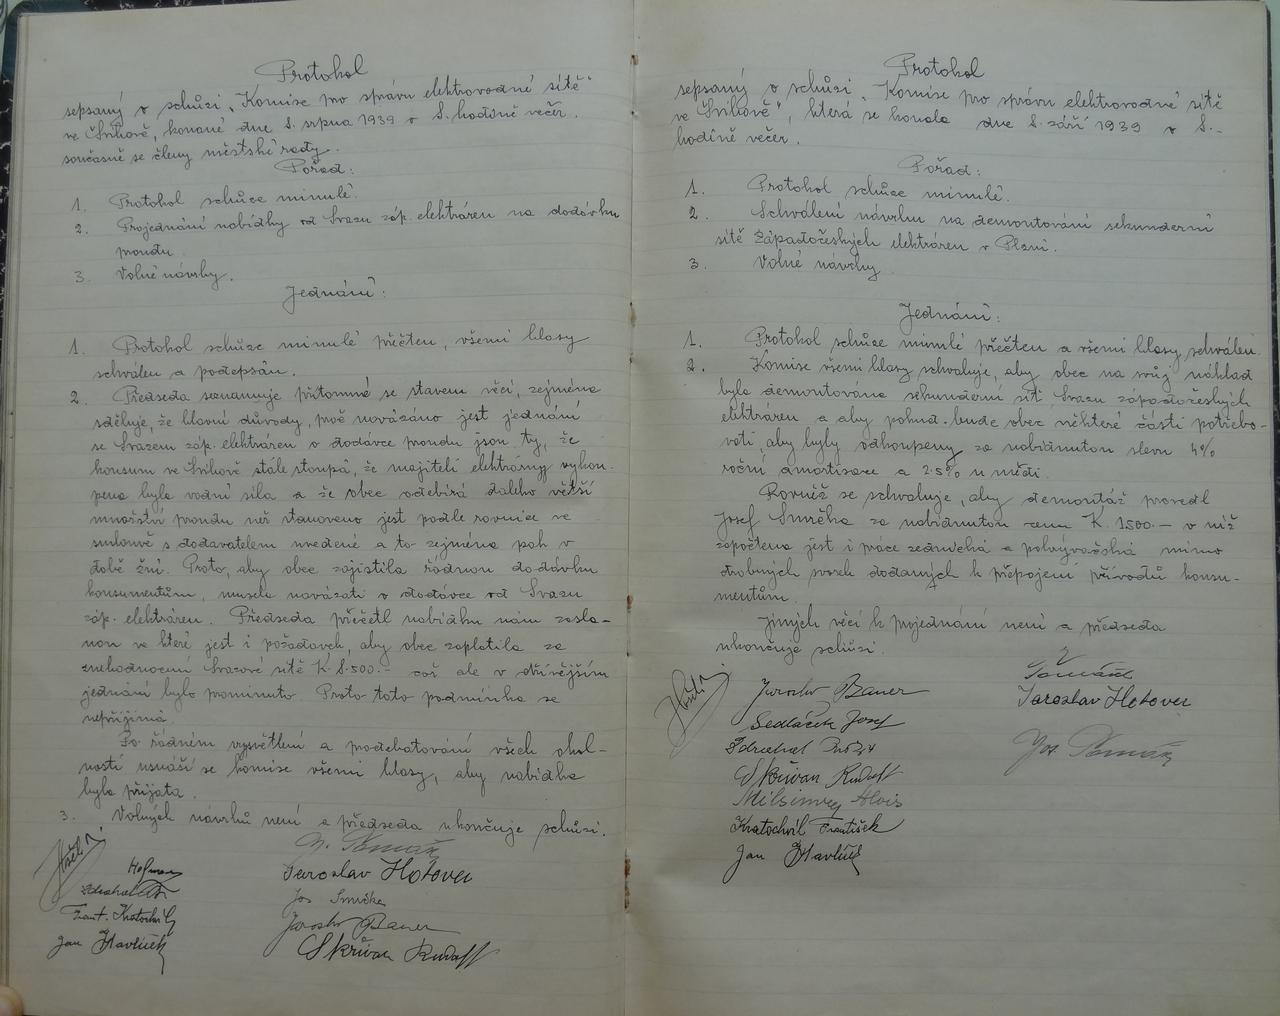 Protokol
sepsaný o schůzi „Komise pro správu elektrovodné sítě"
ve Švihově, konané dne 8. srpna 1939 o 8. hodině večer.
současně se členy městské rady.
Pořad:
1. Protokol schůze minulé.
2. Projednání nabídky od Svazu záp. elektráren na dodávku
proudu.
3. Volné návrhy.
Jednání:
1. Protokol schůze minulé přečten, všemi hlasy
schválen a podepsán.
2. Předseda seznamuje přítomné se stavem věcí, zejména
sděluje, že hlavní důvody, proč navázáno jest jednání
se Svazem záp. elektráren o dodávce proudu jsou ty, že
konsum ve Švihově stále stoupá, že majiteli elektrárny vykou-
pena byla vodní síla a že obec odebírá daleko větší
množství proudu než stanoveno jest podle rovnice ve
smlouvě s dodavatelem uvedené a to zejména pak v
době žní. Proto, aby obec zajistila řádnou dodávku
konsumentům, musela navázati o dodávce od Svazu
záp. elektráren. Předseda přečetl nabídku nám zasla-
nou ve které jest i požadavek, aby obec zaplatila za
znehodnocení Svazové sítě K 8.500.- což ale v dřívějším
jednání bylo prominuto. Proto tato podmínka se
nepřijímá.
Po řádném vysvětlení a prodebatování všech okol-
ností usnáší se komise všemi hlasy, aby nabídka
byla přijata.
3. Volných návrhů není a předseda ukončuje schůzi.
Tomáš
Hofman
Jaroslav Hotovec
Zdrahal
Jos Smrčka
Frant. Kratochvíl
Jaroslav Bauer
Jan Havlíček
Skřivan Rudolf
Protokol
sepsaný o schůzi „Komise pro správu elektrovodné sítě
ve Švihově", která se konala dne 8. září 1939 o 8.-
hodině večer.
Pořad:
1. Protokol schůze minulé.
2. Schválení návrhu na demontování sekunderní
sítě Západočeských elektráren v Plzni.
3. Volné návrhy.
Jednání:
1. Protokol schůze minulé přečten a všemi hlasy schválen.
2. Komise všemi hlasy schvaluje, aby obec na svůj náklad
byla demontována sekunderní síť Svazu západočeských
elektráren a aby pokud bude obec některé části potřebo-
vati aby byly odkoupeny za nabídnutou slevu 4%
roční amortisace a 25% u mědi.
Rovněž se schvaluje, aby demontáž provedl
Josef Smrčka za nabídnutou cenu K 1500.- v níž
započtena jest i práce zednická a pokrývačská mimo
drobných svorek dodaných k přepojení přívodů konsu-
mentům.
Jiných věcí k projednání není a předseda
ukončuje schůzi.
Tomáš
Jaroslav Bauer
Jaroslav Hotovec
Sedláček Josef
Zdrahal
Jos Tomáš
Skřivan Rudolf
Alois
Kratochvíl František
Jan Havlíček